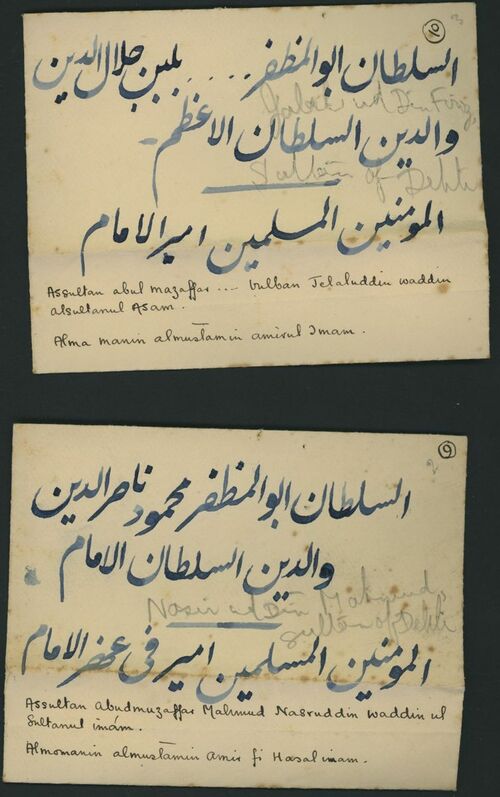 10
السلطان ابوالمظفر.....بلبن جلال الدین
والدین السلطان الاعظم
Sultan of Dehli
المومنین المسلمین امیر الامام
Assultan abul mazaffar .... bulban Jelaluddin waddin
alsultanul Asam.
Alma manin almustamin amirul Imam.
9
السلطان ابوالمظفر محمود ناصر الدین
والدین السلطان الامام
Nasir ud Din Mahmud,
Sultan of Dehli
المومنین المسلمین امیر فی عهر الامام
Assultan abudmuzaffar Mahmud Nasruddin waddin ul
Sultanul imám.
Almomanin almustamin Amir fi Hasalimam.